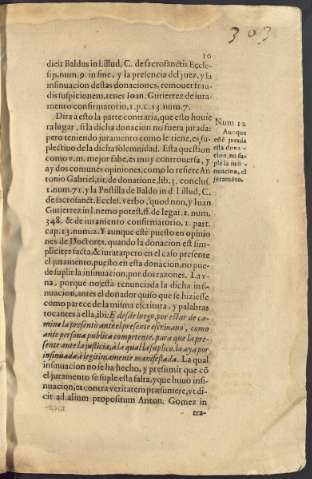 303
10
dicta Baldus in l. illud, C. de sacrosanctis Eccle-
sijs, num. 9. in fine, y la presencia del juez, y la
insinuacion destas donaciones, remouet frau
dis suspicionem, tenet Ioan. Gutierrez de iura-
mento confirmatorio, 1. p. c. 13. num. 7.
Dirà à esto la parte contraria, que esto huuie
ra lugar, si la dicha donacion no fuera jurada:
pero teniendo juramento como le tiene, es su-
plectiuo de la dicha solemnidad. Esta question
como v. m. mejor sabe, es muy controuersa, y
ay dos comunes opiniones, como lo refiere An
tonio Gabriel, tit. de donatione, lib. 3. conclus.
1. num. 71. y la Postilla de Baldo in d. l. illud, C.
de sacrosanct. Eccles. verbo, quod non, y Iuan
Gutierrez in l. nemo potest, ff. de legat. 1. num.
348. & de iuramento confirmatorio, 1. part.
cap. 13. num. 2. Y aunque esté puesto en opinio
nes de Doctores, quando la donacion est sim-
pliciter facta, & iurata: pero en el caso presente
el juramento, puesto en esta donacion, no pue-
de suplir la insinuacion, por dos razones. La v-
na, porque no està renunciada la dicha insi-
nuacion, antes el donador quiso que se hiziesse
como parece de la misma escritura, y palabras
tocantes à ella, ibi: E desde luego, por estar de ca-
mino la presento ante el presente escriuano, como
ante persona publica competente, para que la pre-
sente ante la justicia, à la qual suplico, la aya por
insinuada è legitimamente manifestada. La qual
insinuacion no se ha hecho, y presumir que cō
el juramento se suple esta falta, y que huuo insi
nuacion, est contra veritatem præsumere, vt di-
cit ad alium propositum Anton. Gomez in
tra-
Num 12
Aunque
esté jurada
esta dona-
cion, no su-
ple la insi-
nuacion, el
juramento.